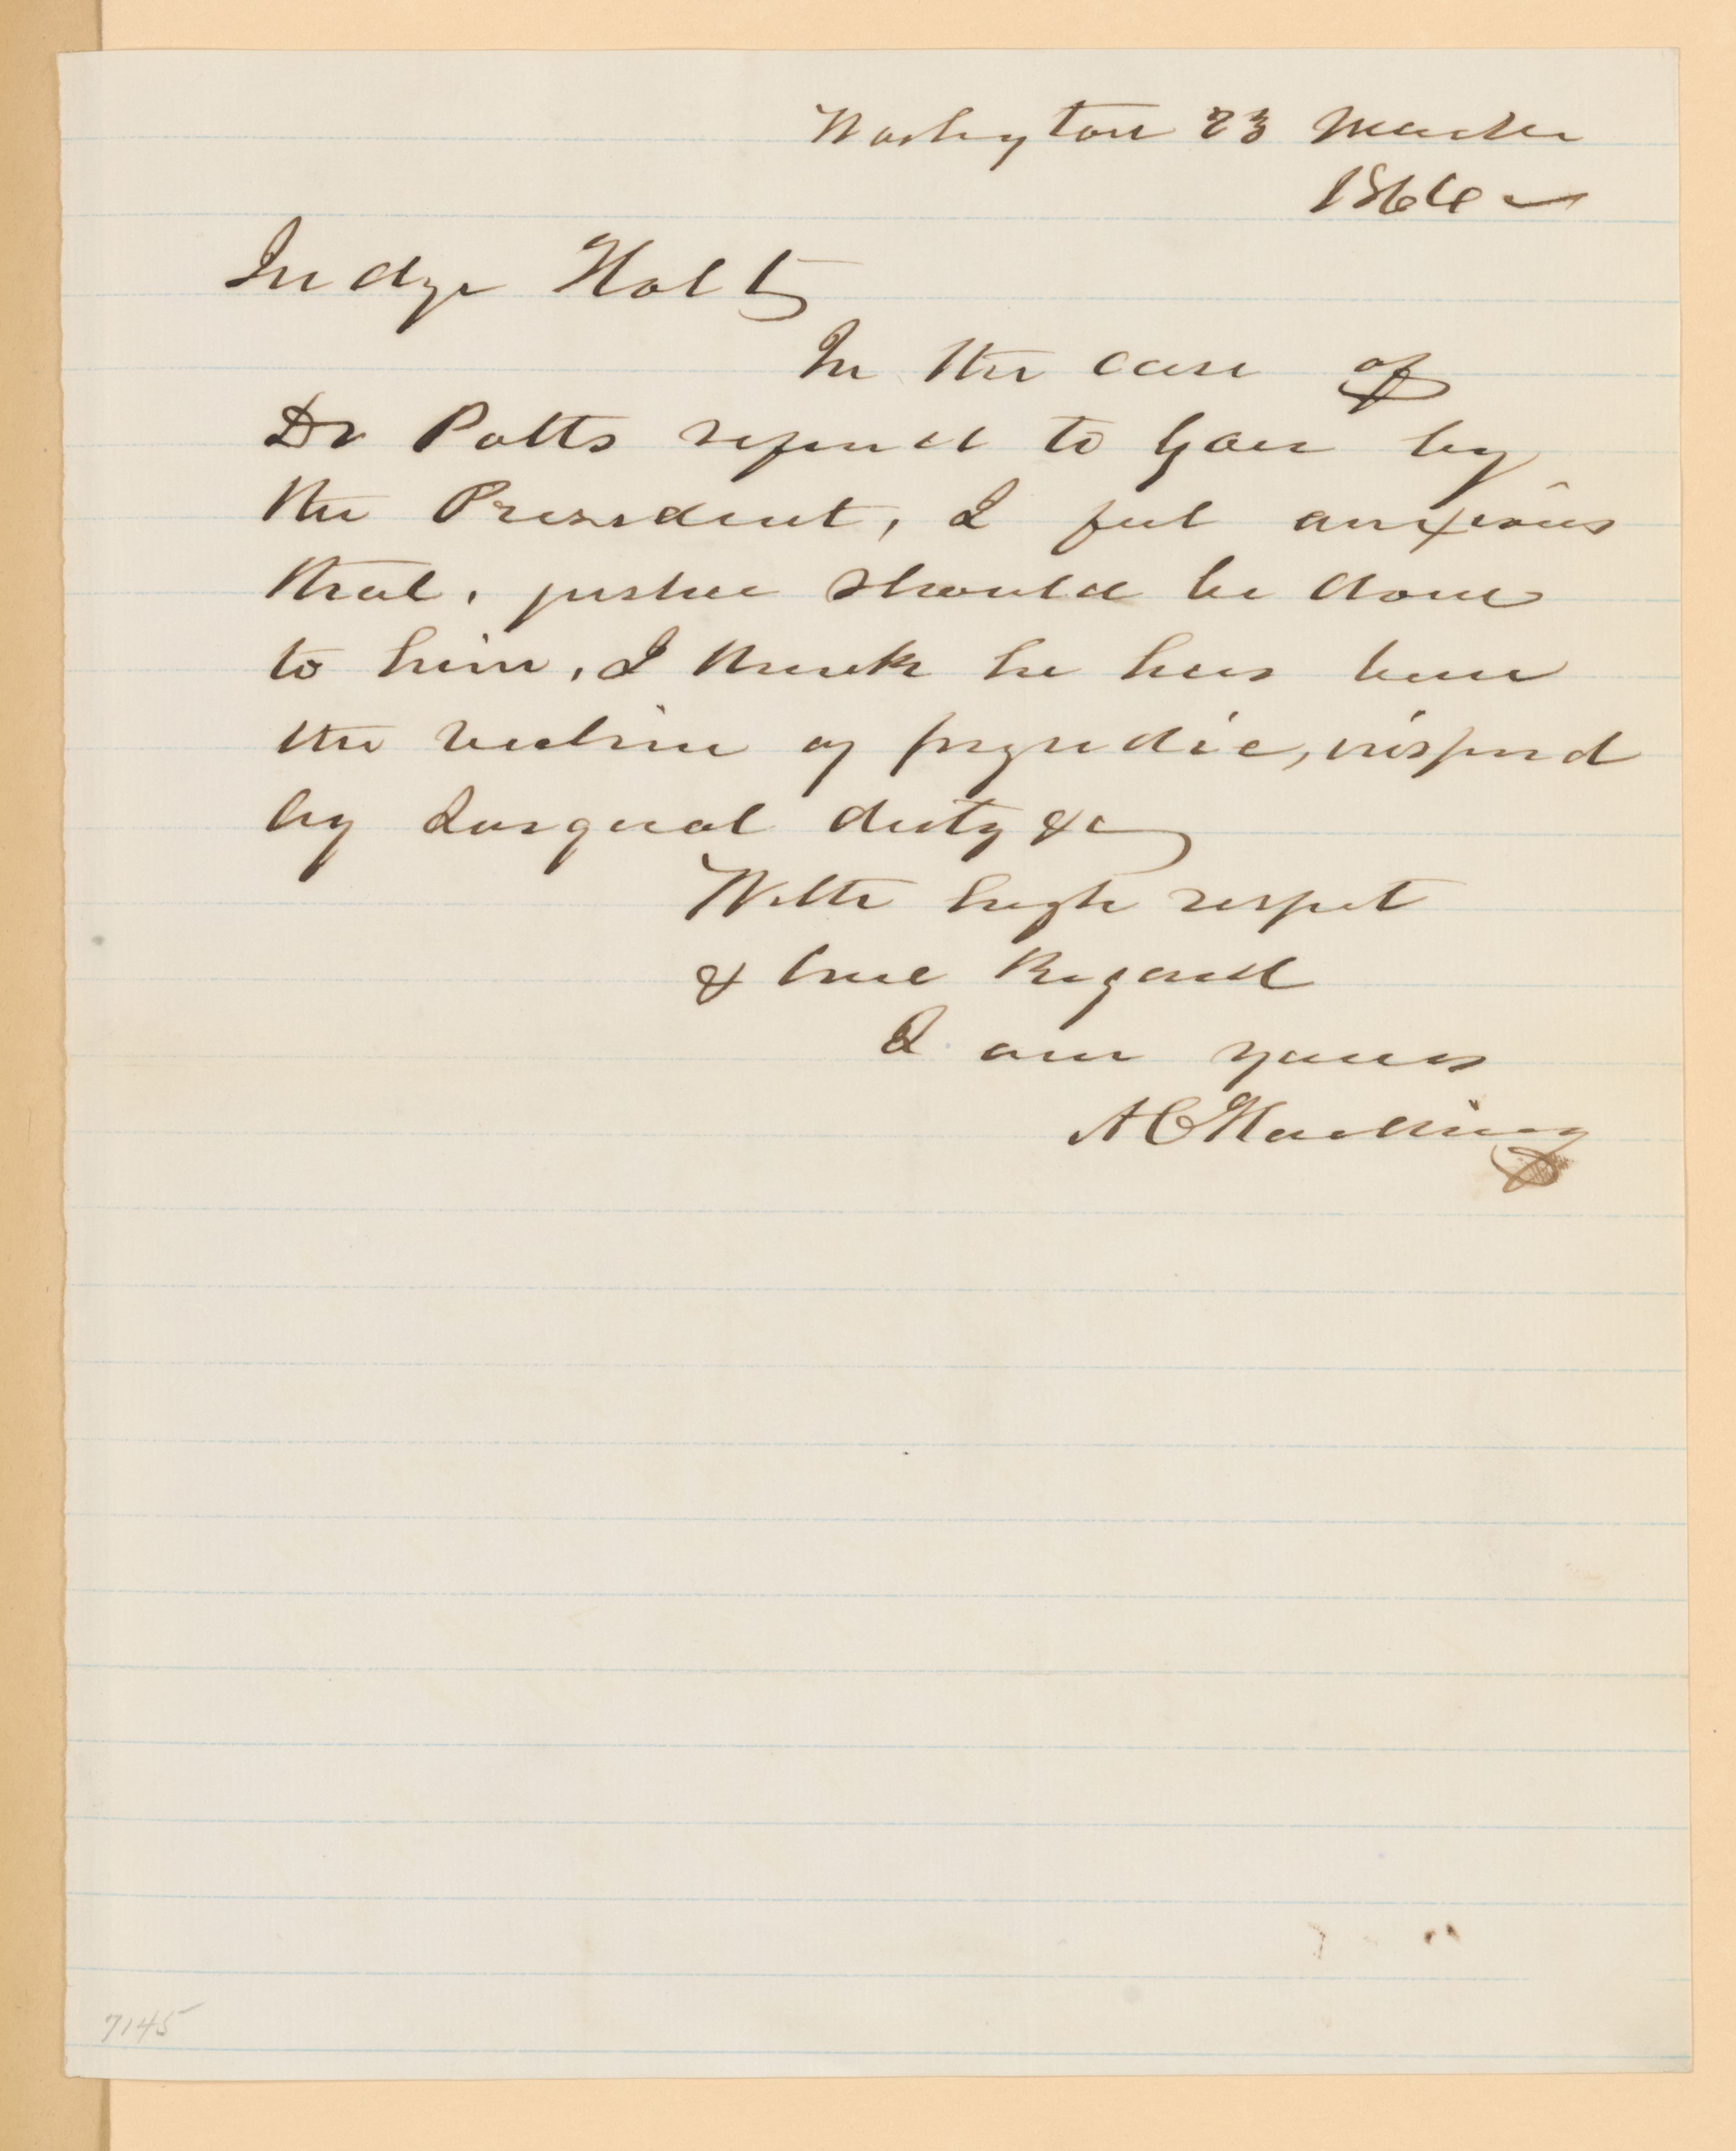 Washington 23 March
1866
Judge Holt
In the case of
Dr Potts referred to you by
the President, I feel anxious
that, justice should be done
to him, I think he has been
the victim of prejudice, inspired
by duty &c
With high respect
& true Regard
I am yours
A C Harding
7145